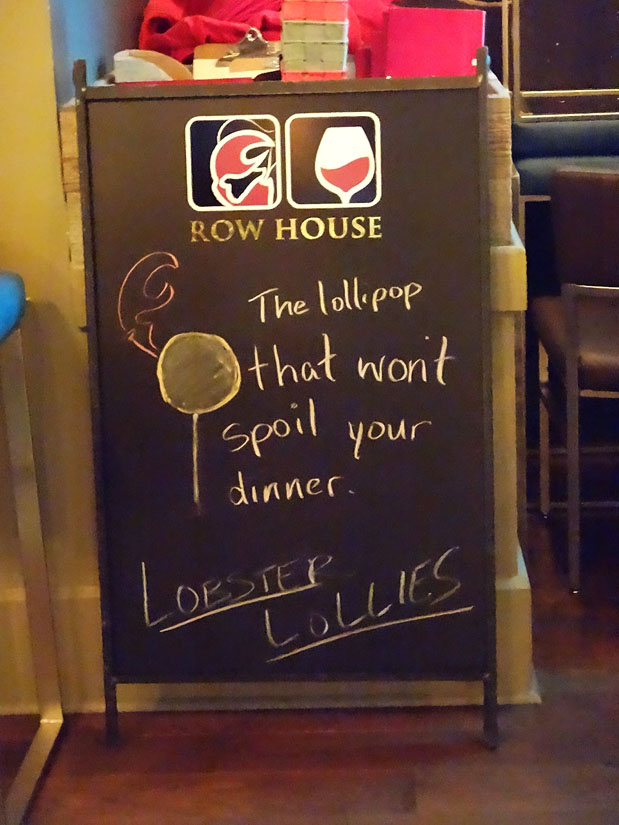 ROW HOUSE
The lollipop
that won't
spoil your
dinner.
LOBSTER
LOLLIES